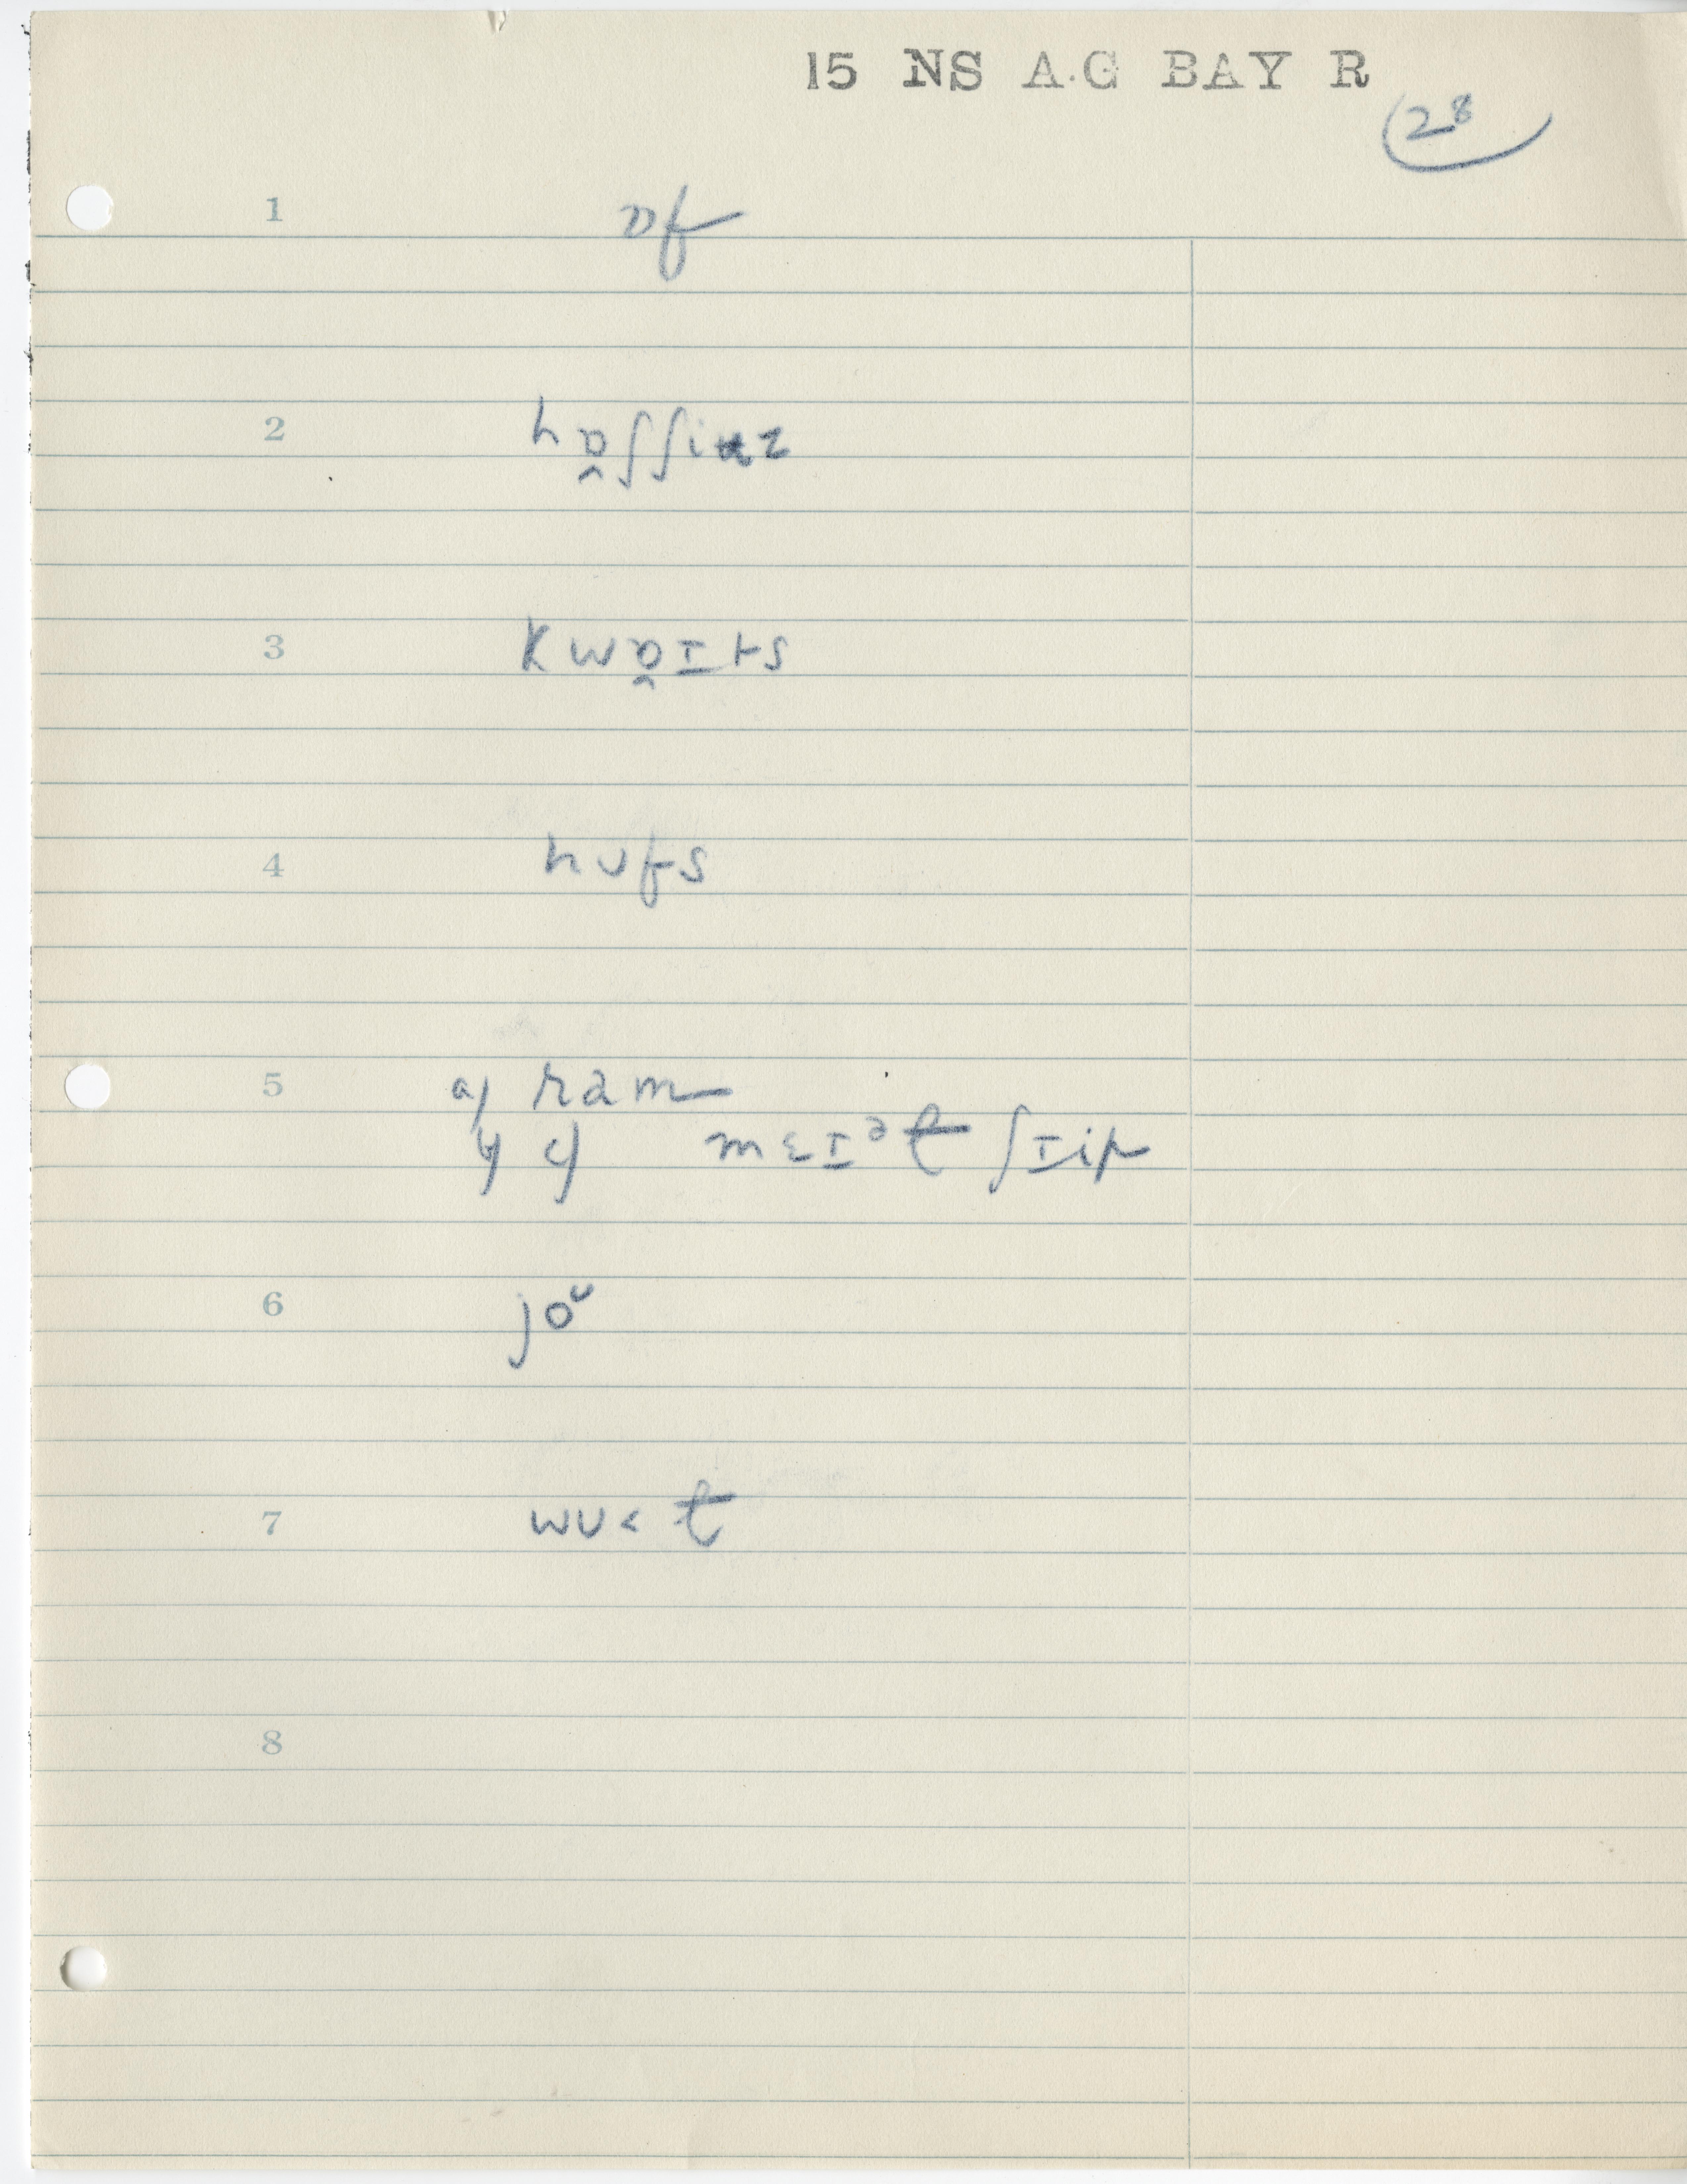 15 NS A.G BAY R
28
1 ɒf
2 hɒ̯ʃʃiz
3 kwɒ̯ɪts
4 hʊfs
5 a) ram
b) c) mɛɪᵊt ʃɪip
6 joᵁ
7 wʊ< t
8